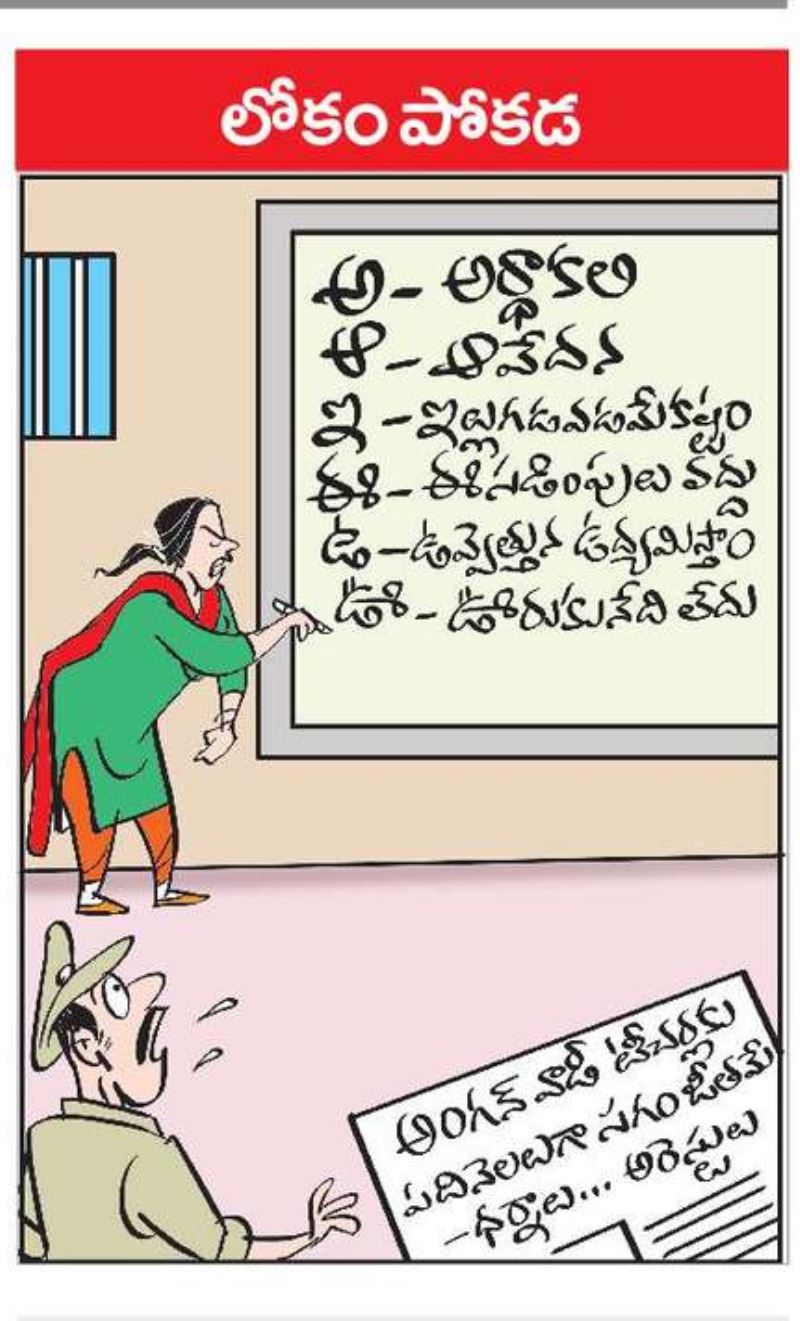 లోకం పోకడ
అ - అర్థాకలి
ఆ - ఆవేదన
ఇ - ఇల్లుగడువడమేకష్టం
ఈ - ఈసడింపులు వద్దు
ఉ - ఉవ్వెత్తున ఉద్యమిస్తాం
ఊ - ఊరుకునేది లేదు
అంగన్ వాడీ టీచర్లకు
పదినెలలుగా సగం జీతమే
- ధర్నాలు... అరెస్టులు